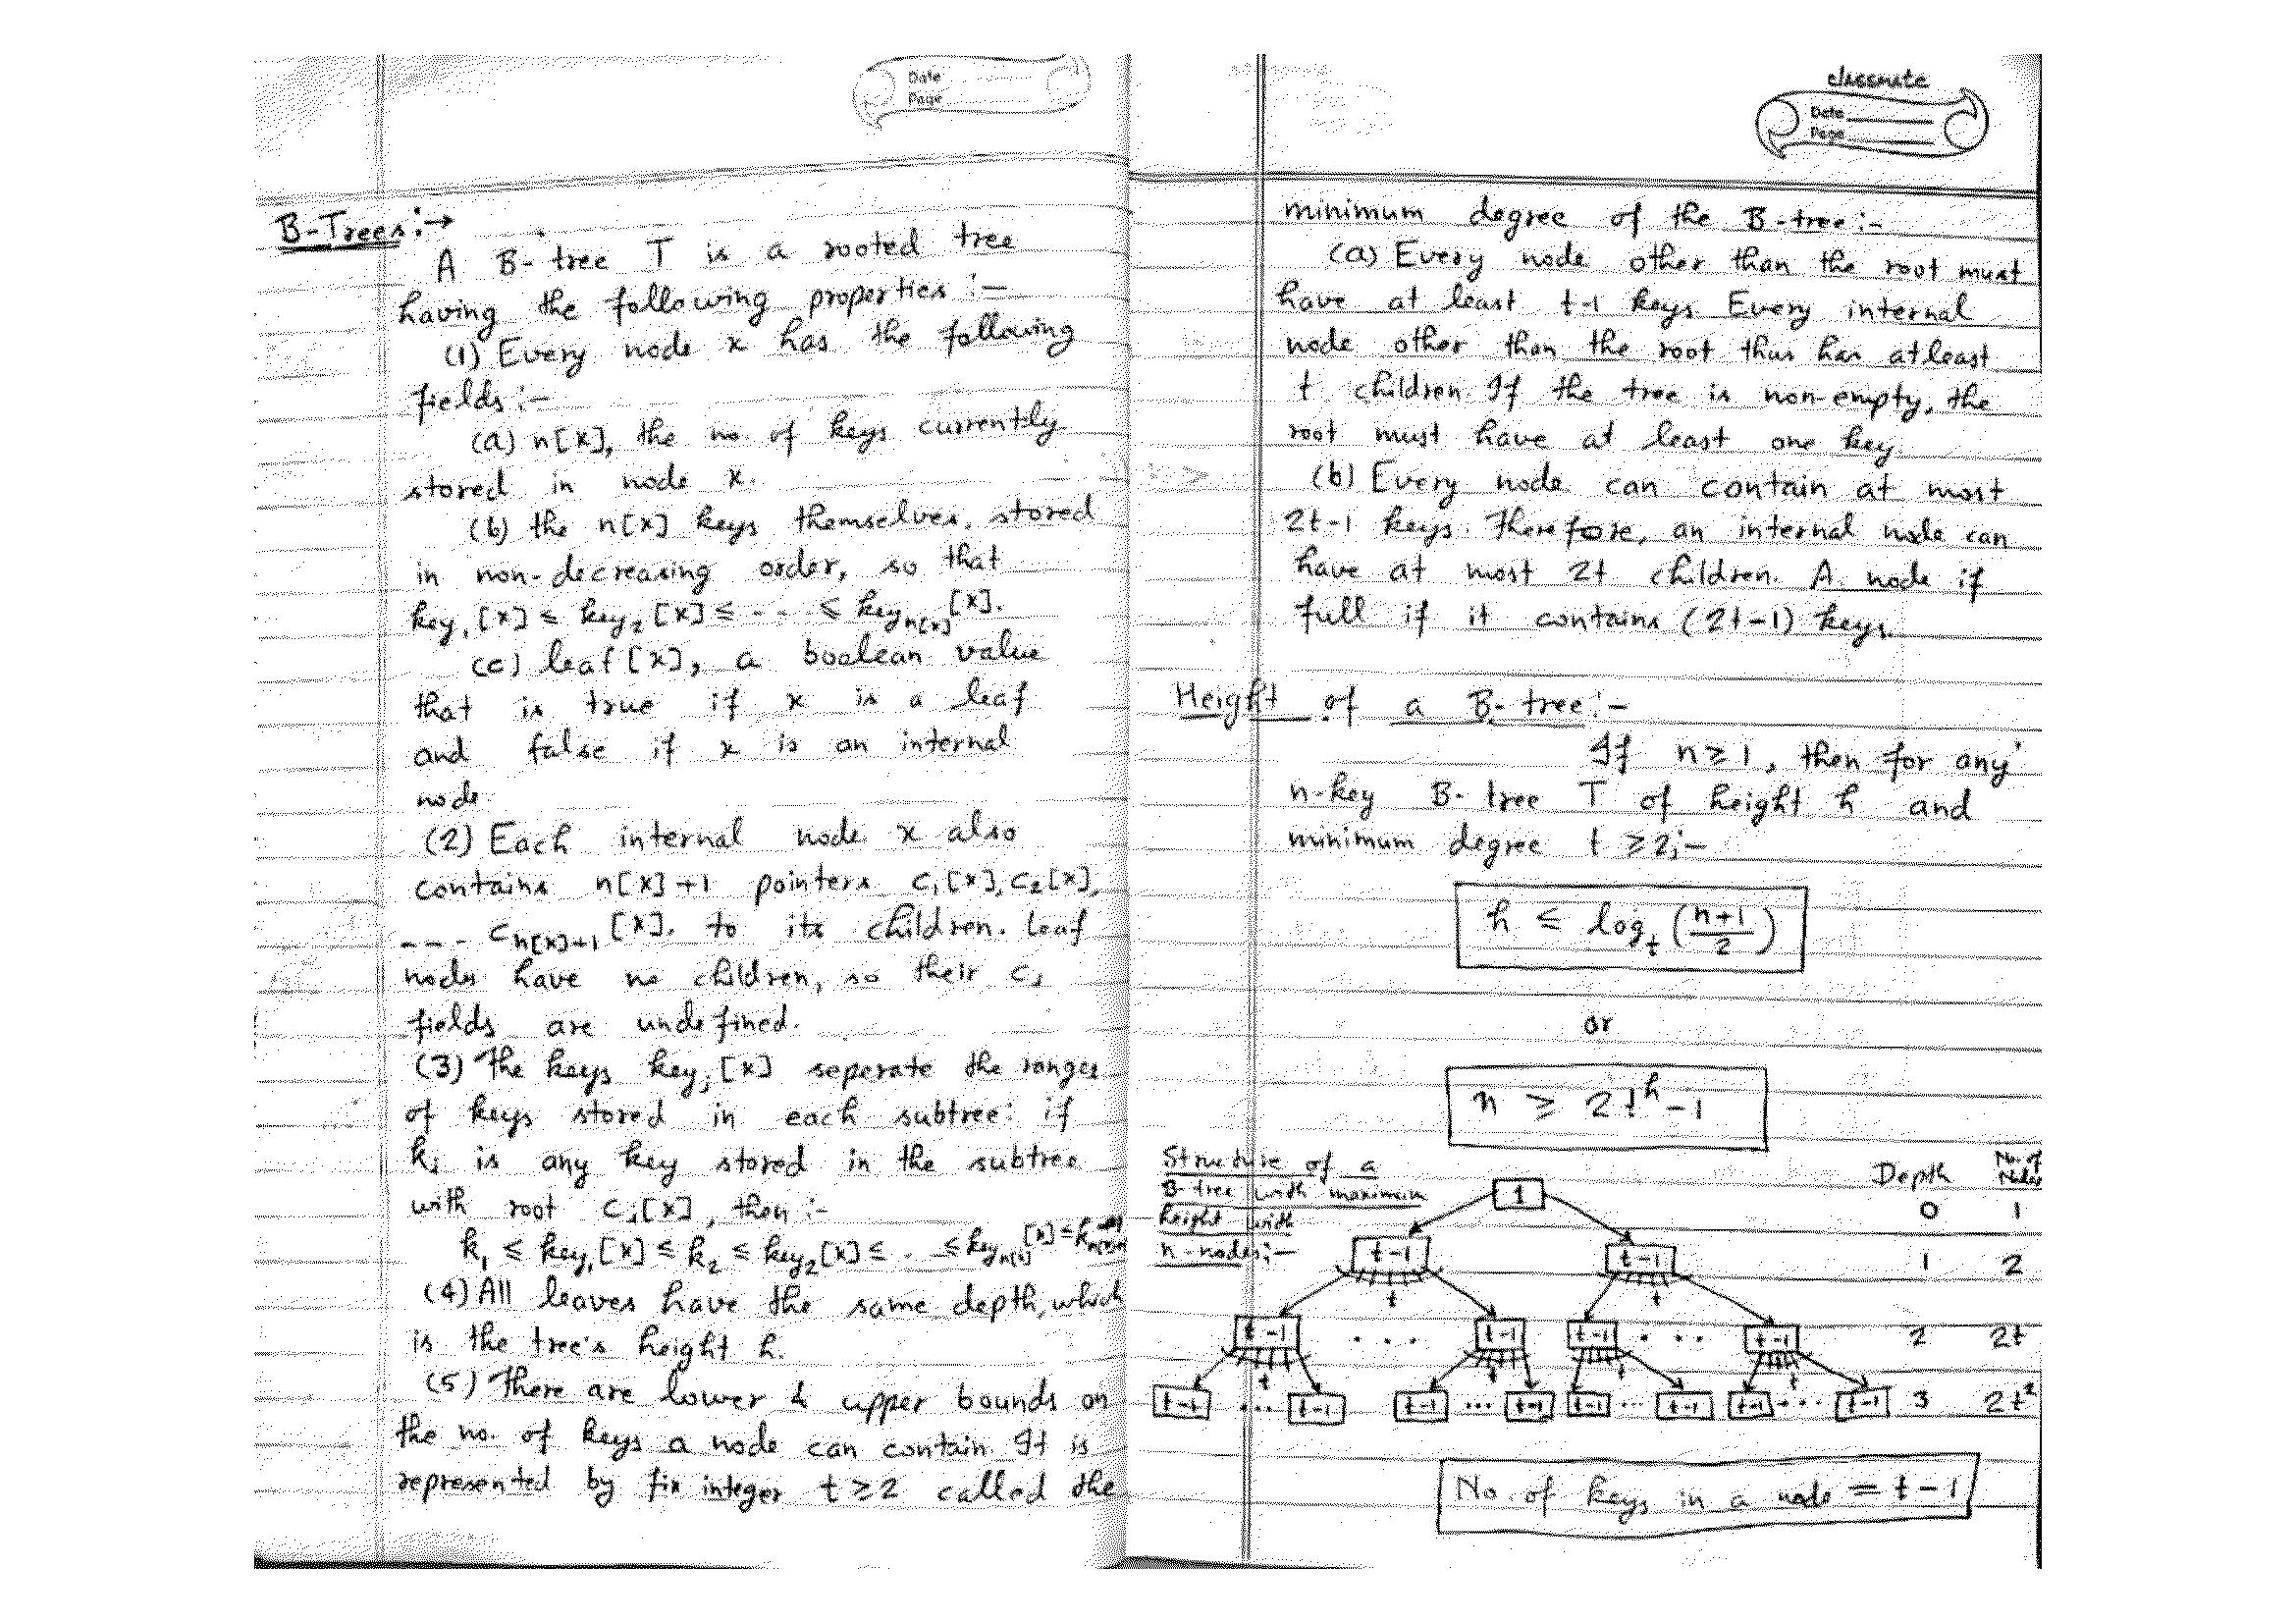 Date
Page
B-Trees:→
A B-tree T is a rooted tree
having the following properties :-
(1) Every node x has the following
fields :-
(a) n[x], the no. of keys currently
stored in node x.
(b) the n[x] keys themselves, stored
in non-decreasing order, so that
key₁[x] ≤ key₂[x] ≤ --- ≤ keyₙ[ₓ][x].
(c) leaf [x], a boolean value
that is true if x is a leaf
and false if x is an internal
node.
(2) Each internal node x also
contains n[x]+1 pointers c₁[x], c₂[x],
--- cₙ[ₓ]₊₁[x]. to its children. Leaf
nodes have no children, so their cᵢ
fields are undefined.
(3) The keys keyᵢ[x] seperate the ranges
of keys stored in each subtree: if
kᵢ is any key stored in the subtree
with root cᵢ[x], then :-
k₁ ≤ key₁[x] ≤ k₂ ≤ key₂[x] ≤ .. ≤ keyₙ[ₓ][x] ≤
(4) All leaves have the same depth, which
is the tree's height h.
(5) There are lower & upper bounds on
the no. of keys a node can contain. It is
represented by fix integer t ≥ 2 called the
classmate
Date
Page
minimum degree of the B-tree :-
(a) Every node other than the root must
have at least t-1 keys. Every internal
node other than the root thus has atleast
t children. If the tree is non-empty, the
root must have at least one key.
(b) Every node can contain at most
2t-1 keys. Therefore, an internal node can
have at most 2t children. A node if
full if it contains (2t-1) keys.
Height of a B-tree :-
If n ≥ 1, then for any
n-key B-tree T of height h and
minimum degree t ≥ 2;-
h ≤ logₜ((n+1)/2)
or
n ≥ 2tʰ - 1
Structure of a
B-tree with maximum
height with
n-nodes :-
Depth No. of Nodes
1 0 1
t-1 t-1 1 2
t t
t-1 ... t-1 t-1 ... t-1 2 2t
t t t t
t-1 ... t-1 t-1 ... t-1 t-1 ... t-1 t-1 ... t-1 3 2t²
No. of keys in a node = t-1